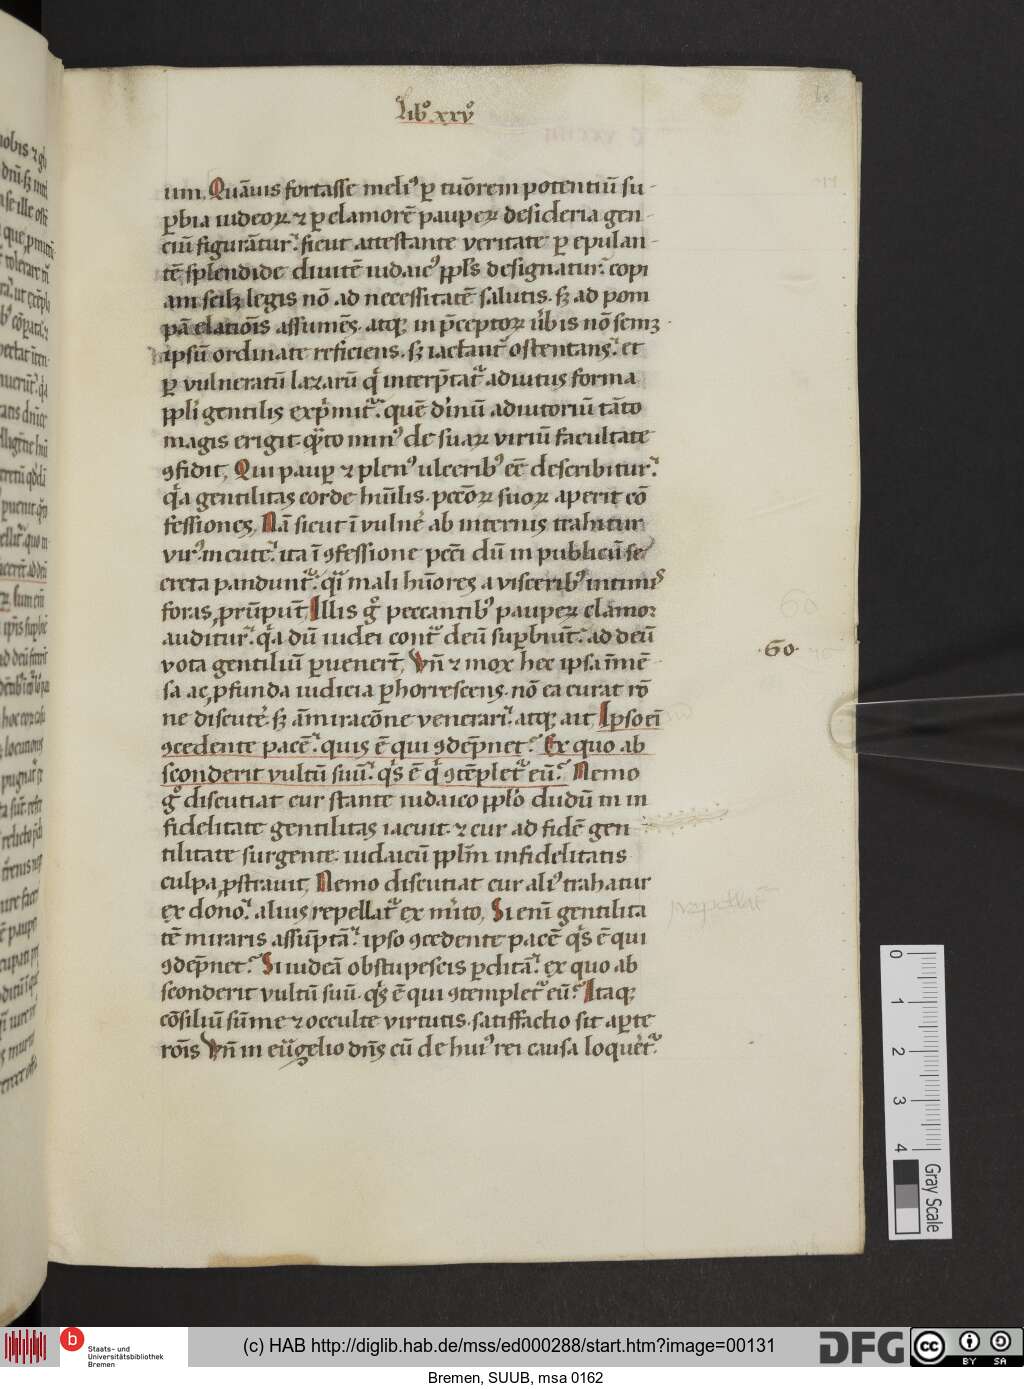 Lib⁹ xxv⁹
um. Quāuis fortasse meli⁹ ꝑ tuōrem potentiū su-
ꝑbia iudeoꝝ ⁊ ꝑ clamorē pauperꝝ desideria gen-
ciū figurātur. sicut attestante veritate ꝑ epulan-
tē splendide diuitē iudaic⁹ ppl̄s designatur. copi
am scilꝫ legis nō ad necessitatē salutis. sꝫ ad pom
pā elatiōis assumēs. atqꝫ in p̄ceptoꝝ v̄bis nō semꝫ
ipsū ordinate reficiens. sꝫ iactant͛ ostentans. et
ꝑ vulneratū lazarū qͥ interp̄tat͛ adiutus forma
ppl̄i gentilis exp̄mit͛. quē diuinū adiutoriū tāto
magis erigit qͣto min⁹ de suaꝝ viriū facultate
ꝯfidit, Qui pauꝑ ⁊ plen⁹ ulcerib⁹ eē describitur.
qͥa gentilitas corde hūilis. peccōꝝ suoꝝ aperit cō
fessiones, Nā sicut ī vulne͛ ab internis trahitur
vir⁹. in cute. ita ī ꝯfessione pecc̄i dū in publicū se
creta pandunt͛. qͣi mali hūores a viscerib⁹ intimis
foras ꝓrūput, Illis gͦ peccantib⁹ pauperꝝ clamor
auditur. qͥa dū iudei cont͛ deū suꝑbiūt. ad deū
vota gentiliū ꝑuenerīt, Vn̄ ⁊ mox hec ipsa īmē-
sa ac ꝓfunda iudicia ꝑhorrescens. nō ea curat rō
·60·
ne discute͛. sꝫ āmiracōne venerari. atqꝫ ait Ipso eī
ꝯcedente pacē. quis ē qui ꝯdēpnet. Ex quo ab
sconderit vultū suū. qͥs ē qͥ ꝯtēplet͛ eū. Nemo
gͦ discutiat cur stante iudaico ppl̄o dudū in in
fidelitate gentilitas iacuit. ⁊ cur ad fidē gen
tilitate surgente iudaicū ppl̄m infidelitatis
culpa ꝓstrauit, Nemo discutiat cur ali⁹ trahatur
ex dono. alius repellat͛ ex mͥto, Si enī gentilita
tē miraris assūptā. ipso ꝯcedente pacē qͥs ē qui
ꝯdēpnet. Si iudeā obstupescis ꝑditā. ex quo ab
sconderit vultū suū. qͥs ē qui ꝯtemplet͛ eū. Itaqꝫ
cōsiliū sūme ⁊ occulte virtutis. satisfactio sit aꝑte
rōis Vn̄ in eūgelio dn̄s cū de hui⁹ rei causa loquēt͛.
0
1
2
3
4
Gray Scale
b
Staats- und
Universitätsbibliothek
Bremen
(c) HAB http://diglib.hab.de/mss/ed000288/start.htm?image=00131
DFG
cc
BY SA
Bremen, SUUB, msa 0162